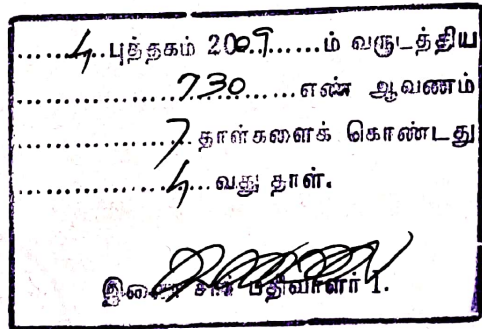 4 புத்தகம் 2009......ம் வருடத்திய
730 எண் ஆவணம்
7 தாள்களைக் கொண்டது
4 வது தாள்.
இணை சார் பதிவாளர் I.